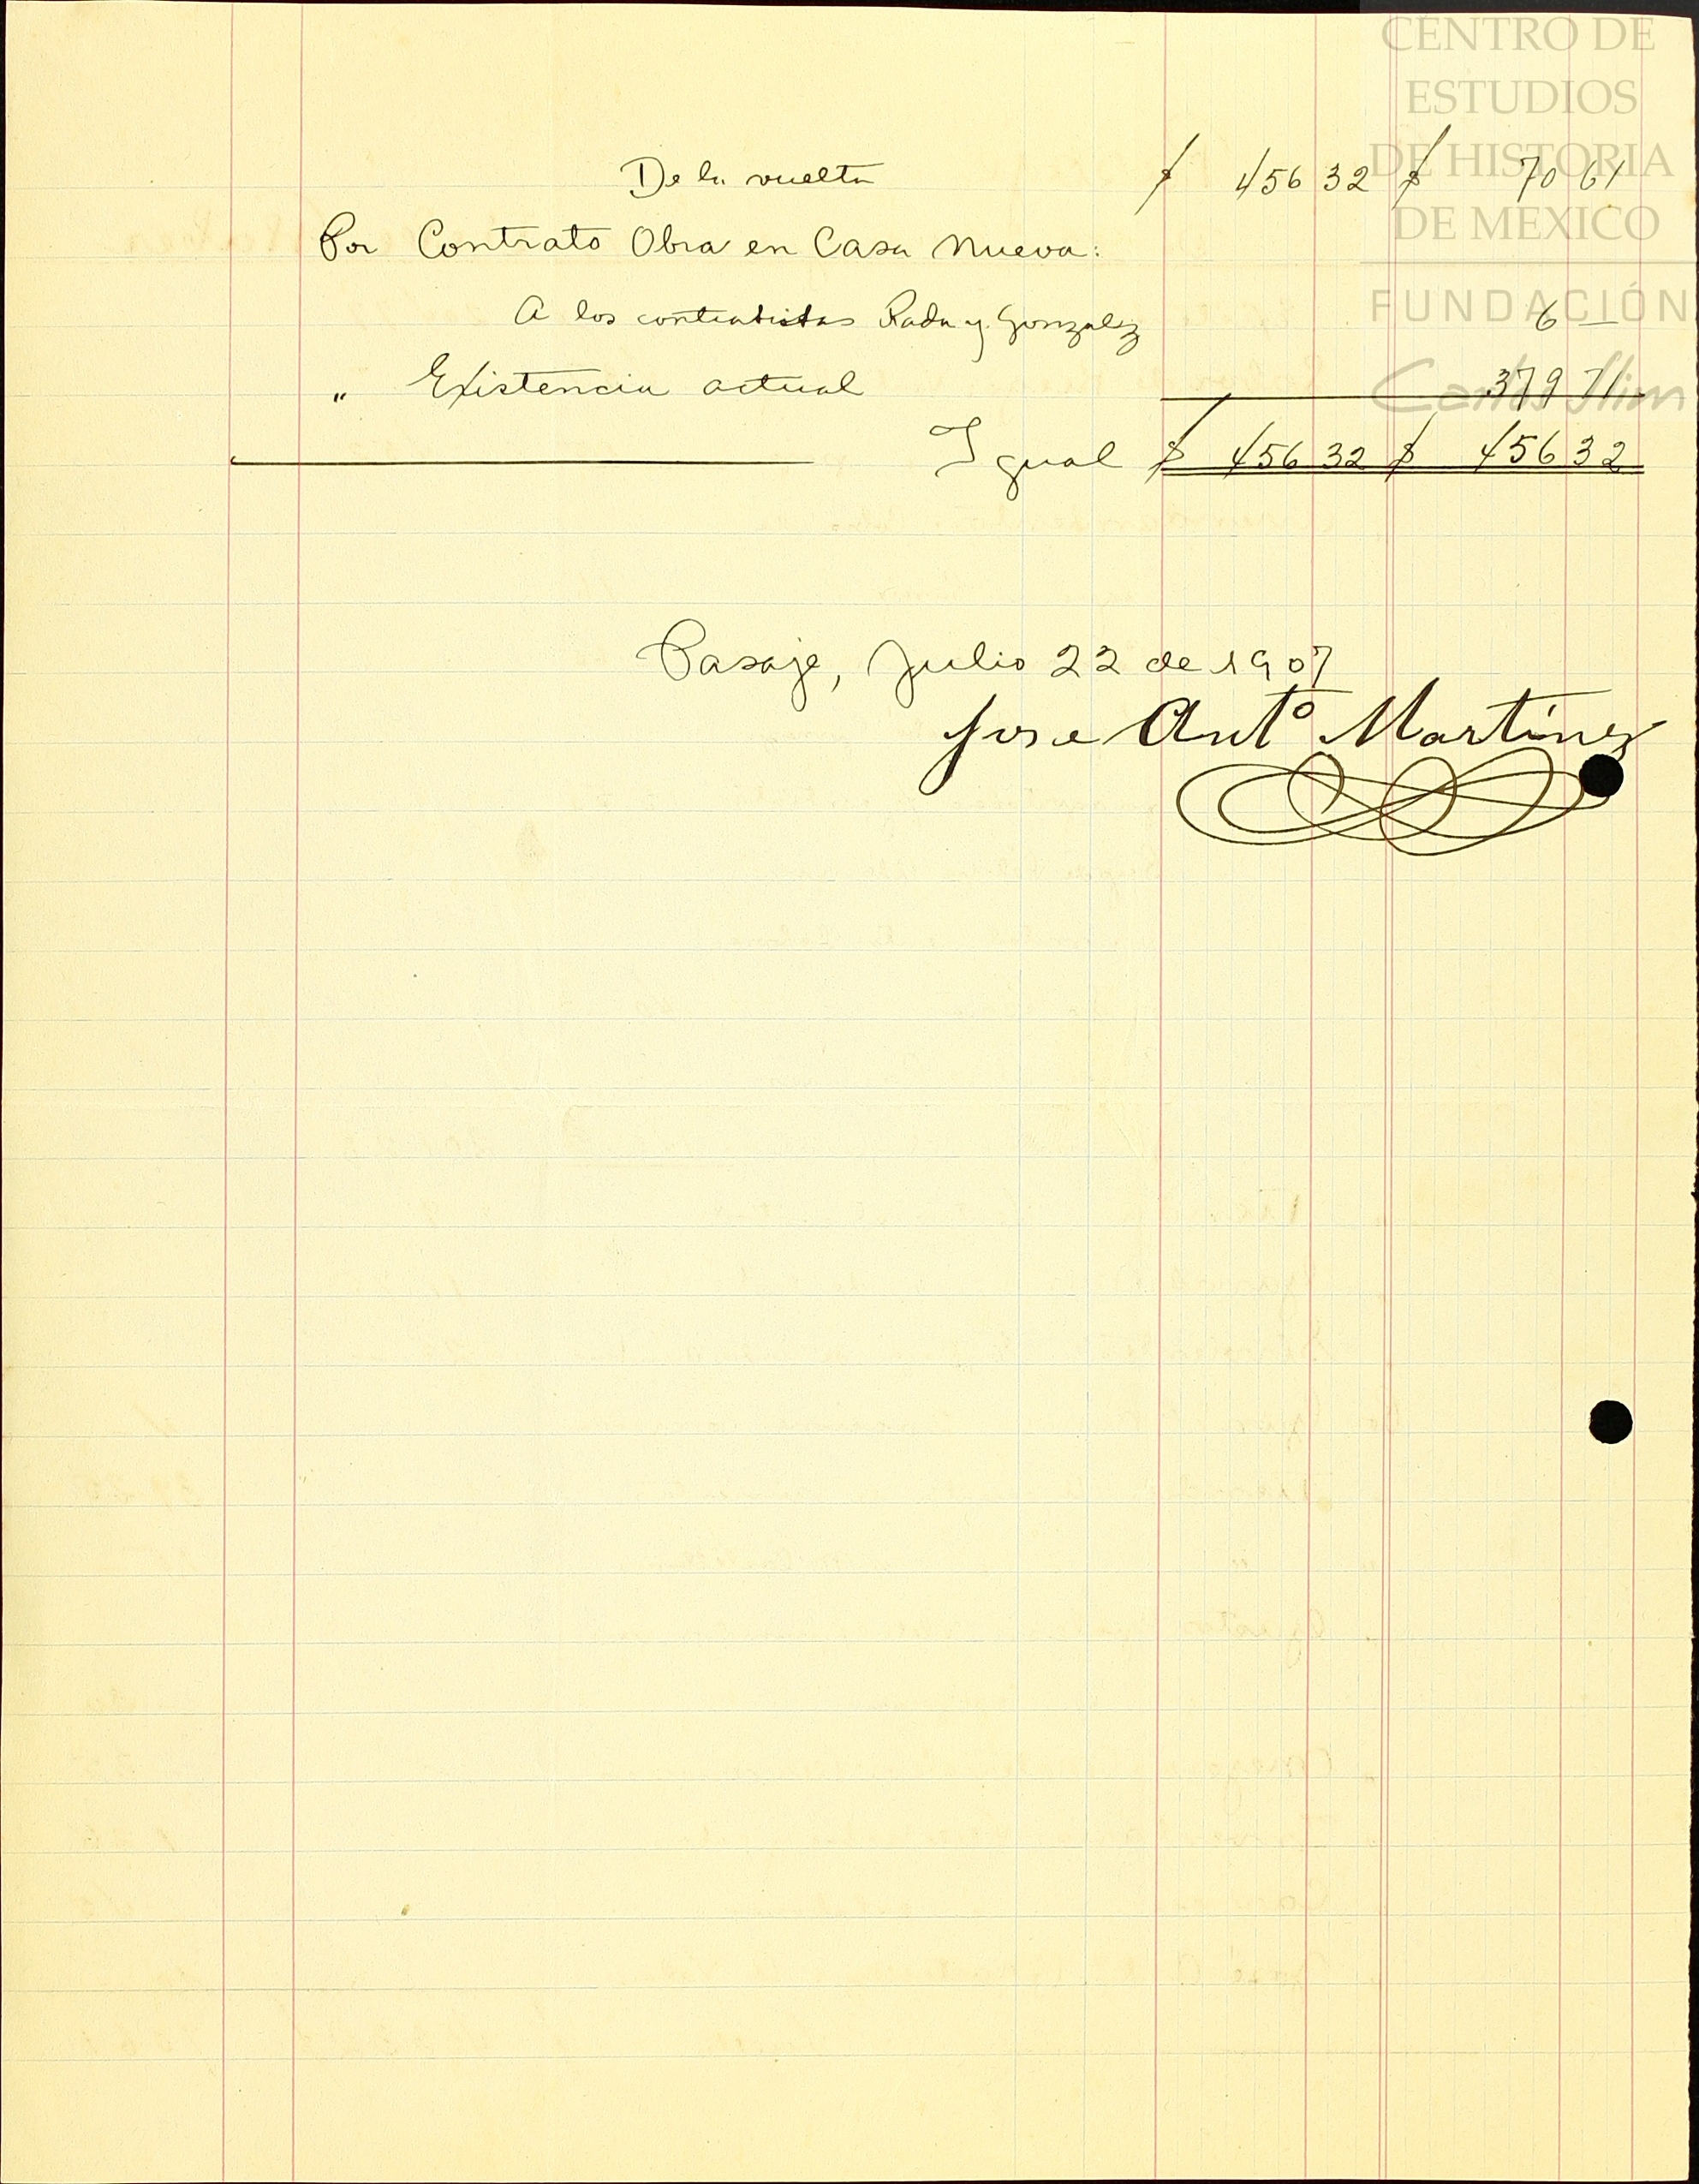 CENTRO DE
ESTUDIOS
DE HISTORIA
DE MÉXICO
FUNDACIÓN
Carlos Slim
De la vuelta $ 456 32 $ 70 61
Por Contrato Obra en Casa Nueva:
A los contratistas Rada y Gonzalez 6 —
" Existencia actual 379 71
Igual $ 456 32 $ 456 32
Pasaje, Julio 22 de 1907
Jose Antº Martínez